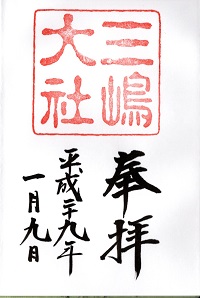 三嶋
大社
奉拝
平成二十九年
一月九日